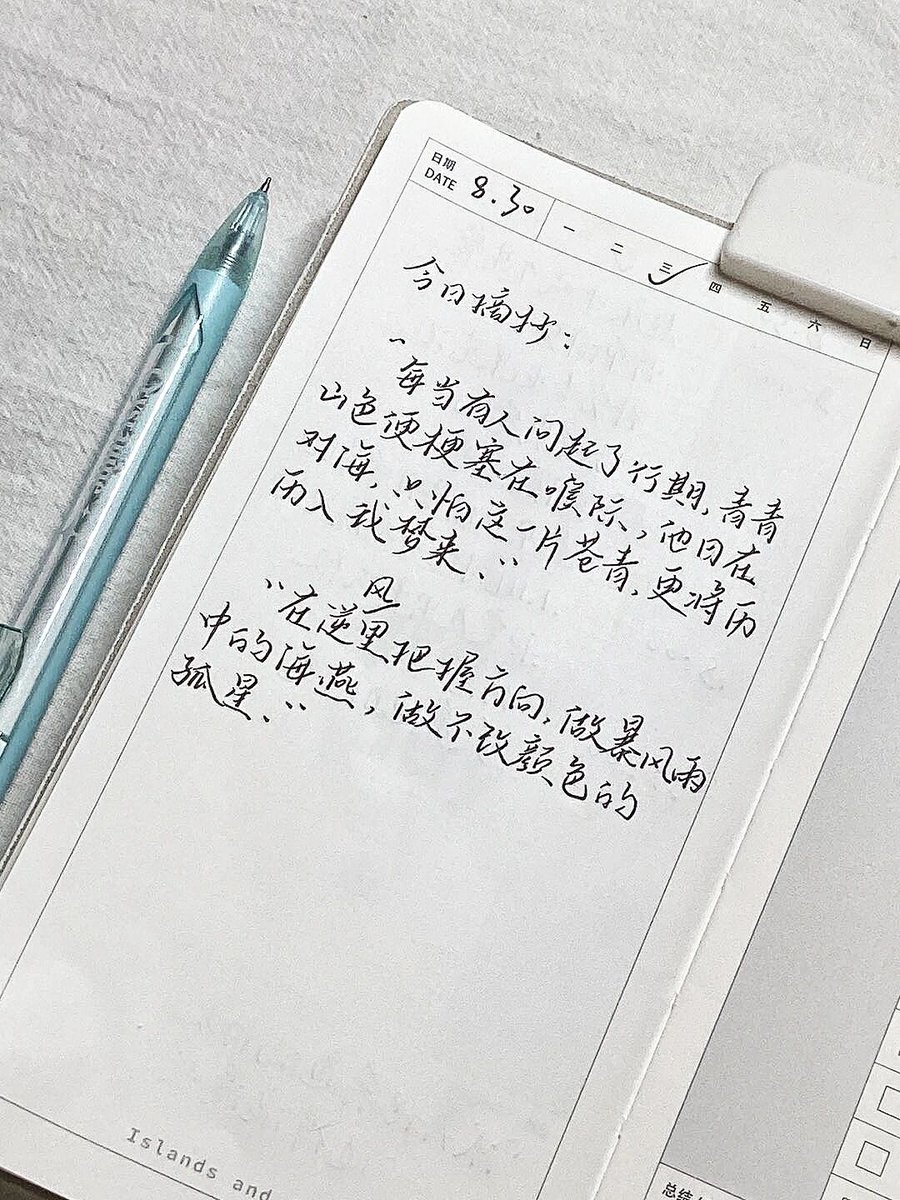 日期
DATE 8.30 一 二 三 四 五 六 日
今日摘抄：
“每当有人问起了行期，青青
山色便梗塞在喉际，他日在
对海，只怕这一片苍青，更将历
历入我梦来．”
“在逆风里把握方向，做暴风雨
中的海燕，做不改颜色的
孤星．”
Islands and
总结